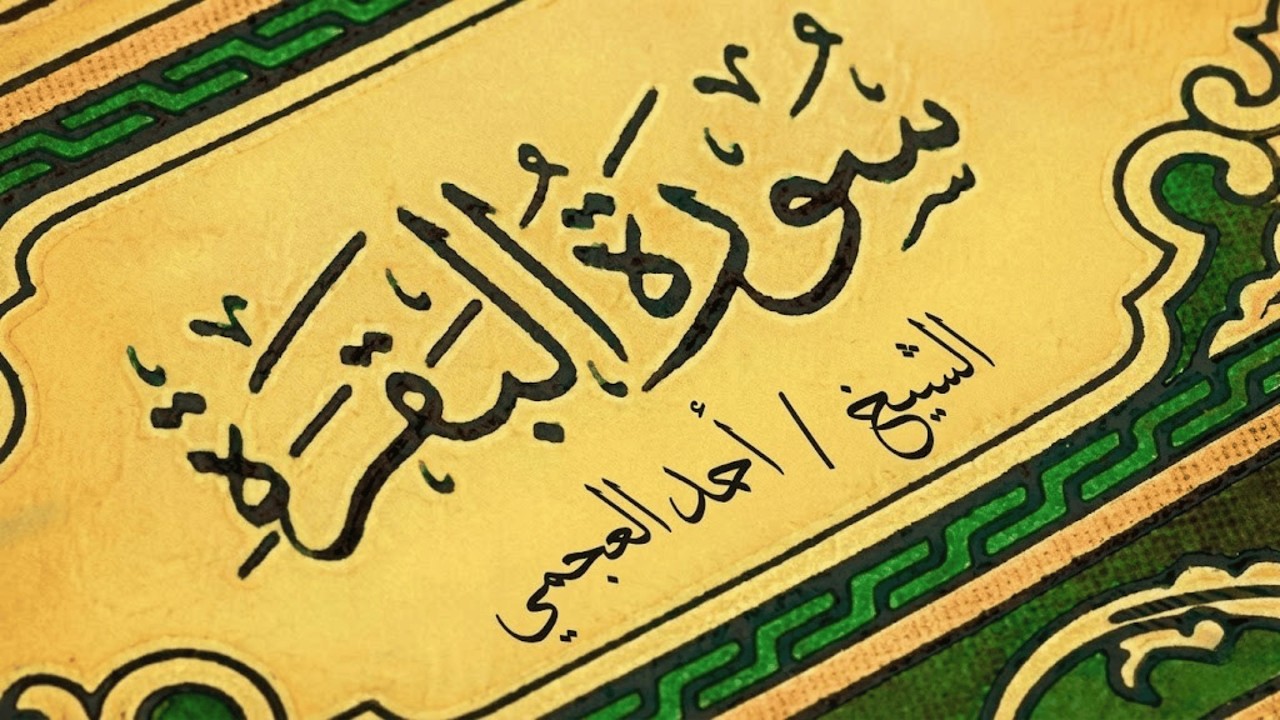 سُورَةُ البَقَرَةِ
الشيخ / أحمد العجمي